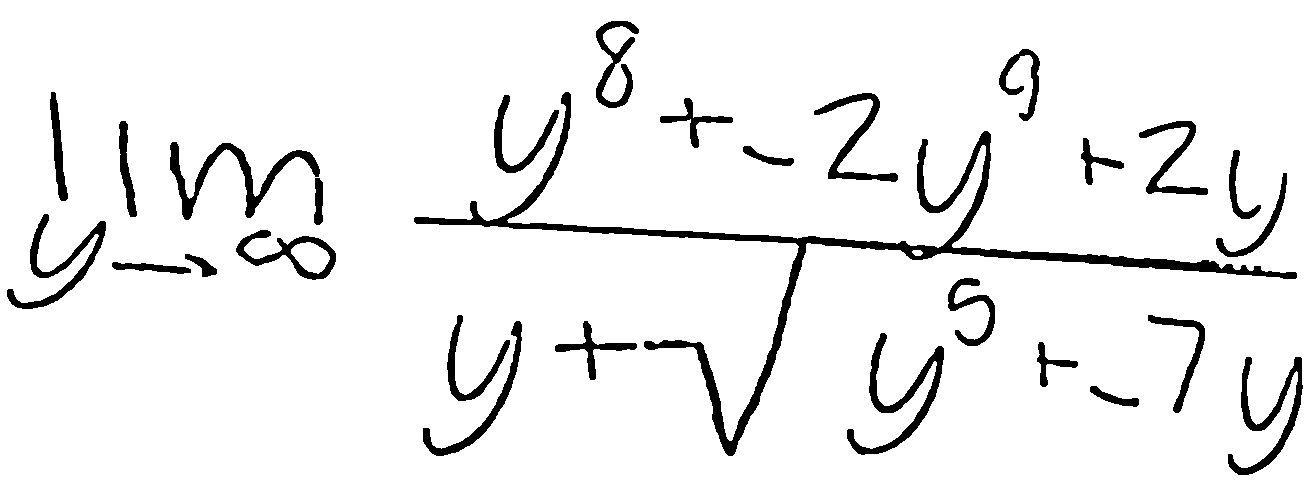 \lim_{y \to \infty} \frac{y^8 + -2y^9 + 2y}{y + \sqrt{y^5 + -7y}}